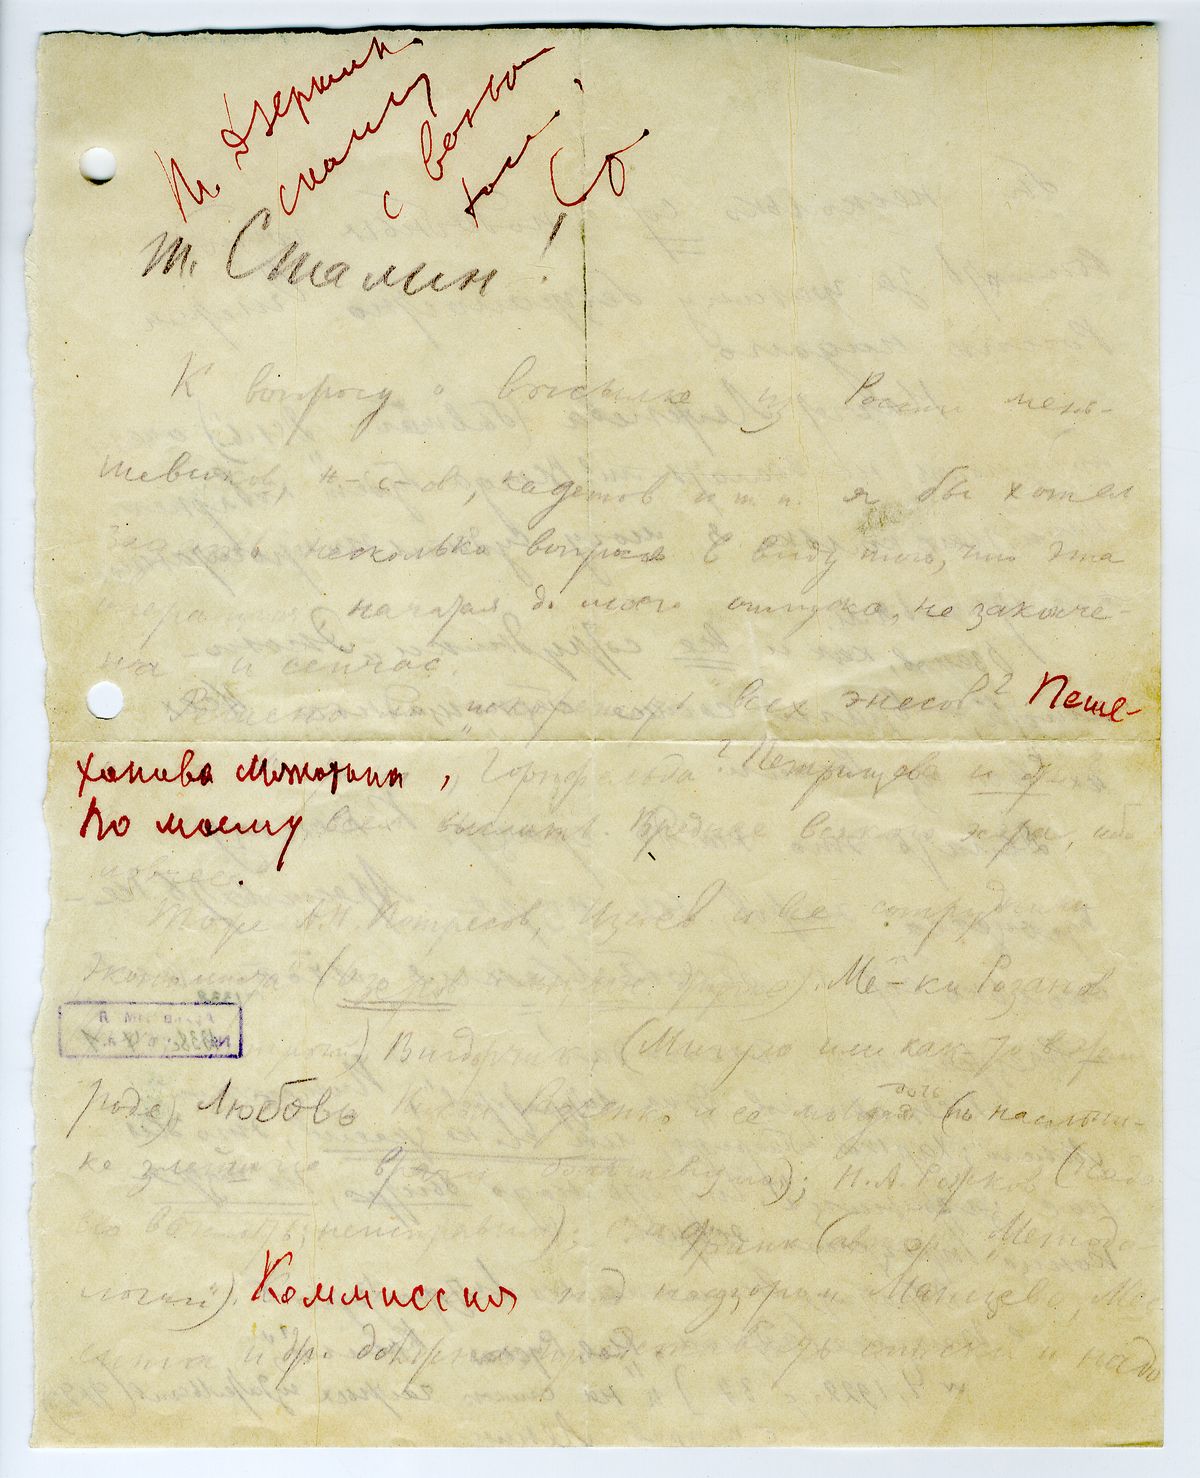 т. Дзержин-
скому
с возвра-
том.
т. Сталин!
К вопросу о высылке из России мень-
шевиков, н.-с-ов, кадетов и т. п. я бы хотел
задать несколько вопросов в виду того, что эта
операция, начатая до моего отпуска, не законче-
на и сейчас.
Решено „искоренить" всех энесов? Пеше-
хонова, Мякотина,
Горнфельда? Петрищева и др.
По моему всех выслать. Вреднее всякого эсера, ибо
ловчее.
Тоже А. Н. Потресов, Изгоев и все сотрудники
„Экономиста" (Озеров и мн. мн. другие). Ме-ки Розанов
Вигдорчик (Мигуло или как-то в этом
роде), Любовь Николаевна Радченко и ее молодая дочь (по наслыш-
ке злейшие враги большевизма); Н. А. Рожков (надо
его выслать; неисправим); С. Л. Франк (автор „Методо-
логии"). Коммиссия под надзором Манцева, Мес-
синга и др. должна представить списки и надо